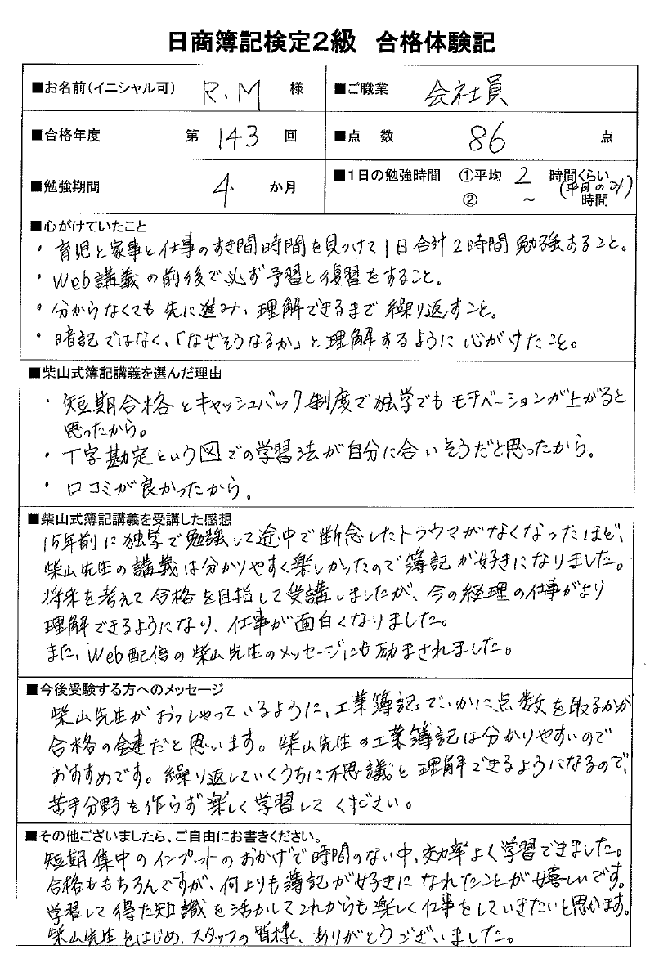 日商簿記検定2級 合格体験記
■お名前(イニシャル可) R.M 様 ■ご職業 会社員
■合格年度 第 143 回 ■点 数 86 点
■勉強期間 4. か月 ■1日の勉強時間 ①平均 2 時間くらい
② ～ 時間
(平日のみ)
■心がけていたこと
・育児と家事と仕事のすき間時間を見つけて1日合計2時間勉強すること。
・Web講義の前後で必ず予習と復習をすること。
・分からなくても先に進み、理解できるまで繰り返すこと。
・暗記ではなく、「なぜそうなるか」と理解するように心がけたこと。
■柴山式簿記講義を選んだ理由
・短期合格とキャッシュバック制度で独学でもモチベーションが上がると
思ったから。
・T字勘定という図での学習法が自分に合いそうだと思ったから。
・口コミが良かったから。
■柴山式簿記講義を受講した感想
15年前に独学で勉強して途中で断念したトラウマがなくなったほど、
柴山先生の講義は分かりやすく楽しかったので簿記が好きになりました。
将来を考えて合格を目指して受講しましたが、今の経理の仕事がより
理解できるようになり、仕事が面白くなりました。
また、Web配信の柴山先生のメッセージにも励まされました。
■今後受験する方へのメッセージ
柴山先生がおっしゃっているように、工業簿記でいかに点数を取るかが
合格の鍵だと思います。柴山先生の工業簿記は分かりやすいので
おすすめです。繰り返していくうちに不思議と理解できるようになるので、
苦手分野を作らず楽しく学習してください。
■その他ございましたら、ご自由にお書きください。
短期集中のインプットのおかげで時間のない中、効率よく学習できました。
合格ももちろんですが、何よりも簿記が好きになれたことが嬉しいです。
学習して得た知識を活かしてこれからも楽しく仕事をしていきたいと思います。
柴山先生をはじめ、スタッフの皆様、ありがとうございました。